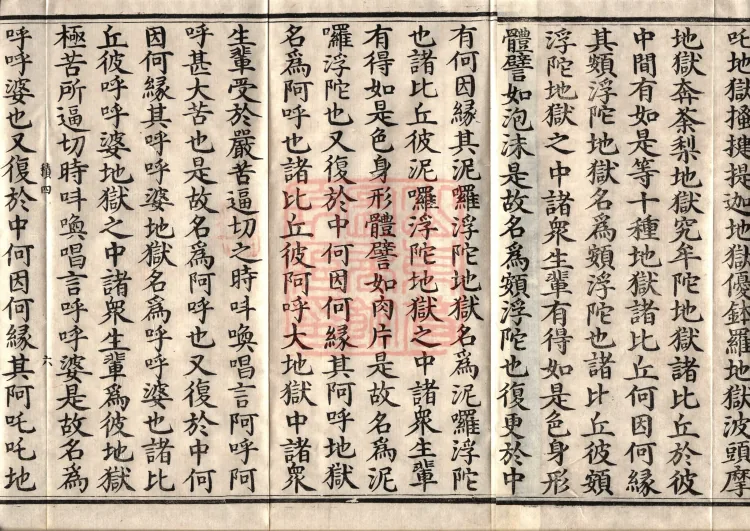 吒地獄搔揵提迦地獄優鉢羅地獄波頭摩
地獄奔荼梨地獄究牟陀地獄諸比丘於彼
中間有如是等十種地獄諸比丘何因何緣
其頞浮陀地獄名爲頞浮陀也諸比丘彼頞
浮陀地獄之中諸衆生輩有得如是色身形
體譬如泡沫是故名爲頞浮陀也復更於中
有何因緣其泥囉浮陀地獄名爲泥囉浮陀
也諸比丘彼泥囉浮陀地獄之中諸衆生輩
有得如是色身形體譬如肉片是故名爲泥
囉浮陀也又復於中何因何緣其阿呼地獄
名爲阿呼也諸比丘彼阿呼大地獄中諸衆
生輩受於嚴苦逼切之時叫喚唱言阿呼阿
呼甚大苦也是故名爲阿呼也又復於中何
因何緣其呼呼婆地獄名爲呼呼婆也諸比
丘彼呼呼婆地獄之中諸衆生輩爲彼地獄
極苦所逼切時叫喚唱言呼呼婆是故名爲
積四 六
呼呼婆也又復於中何因何緣其阿吒吒地